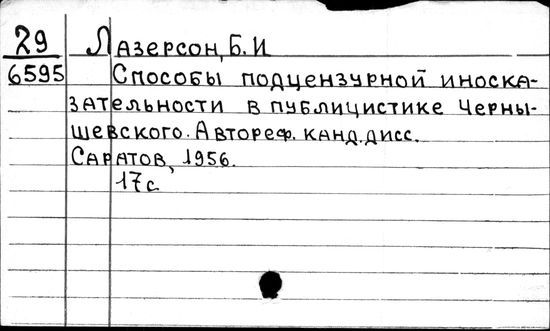 29
6595
Лазерсон, Б. И
Способы подцензурной иноска-
зательности в публицистике Черны-
шевского. Автореф. канд. дисс.
Саратов, 1956.
17с